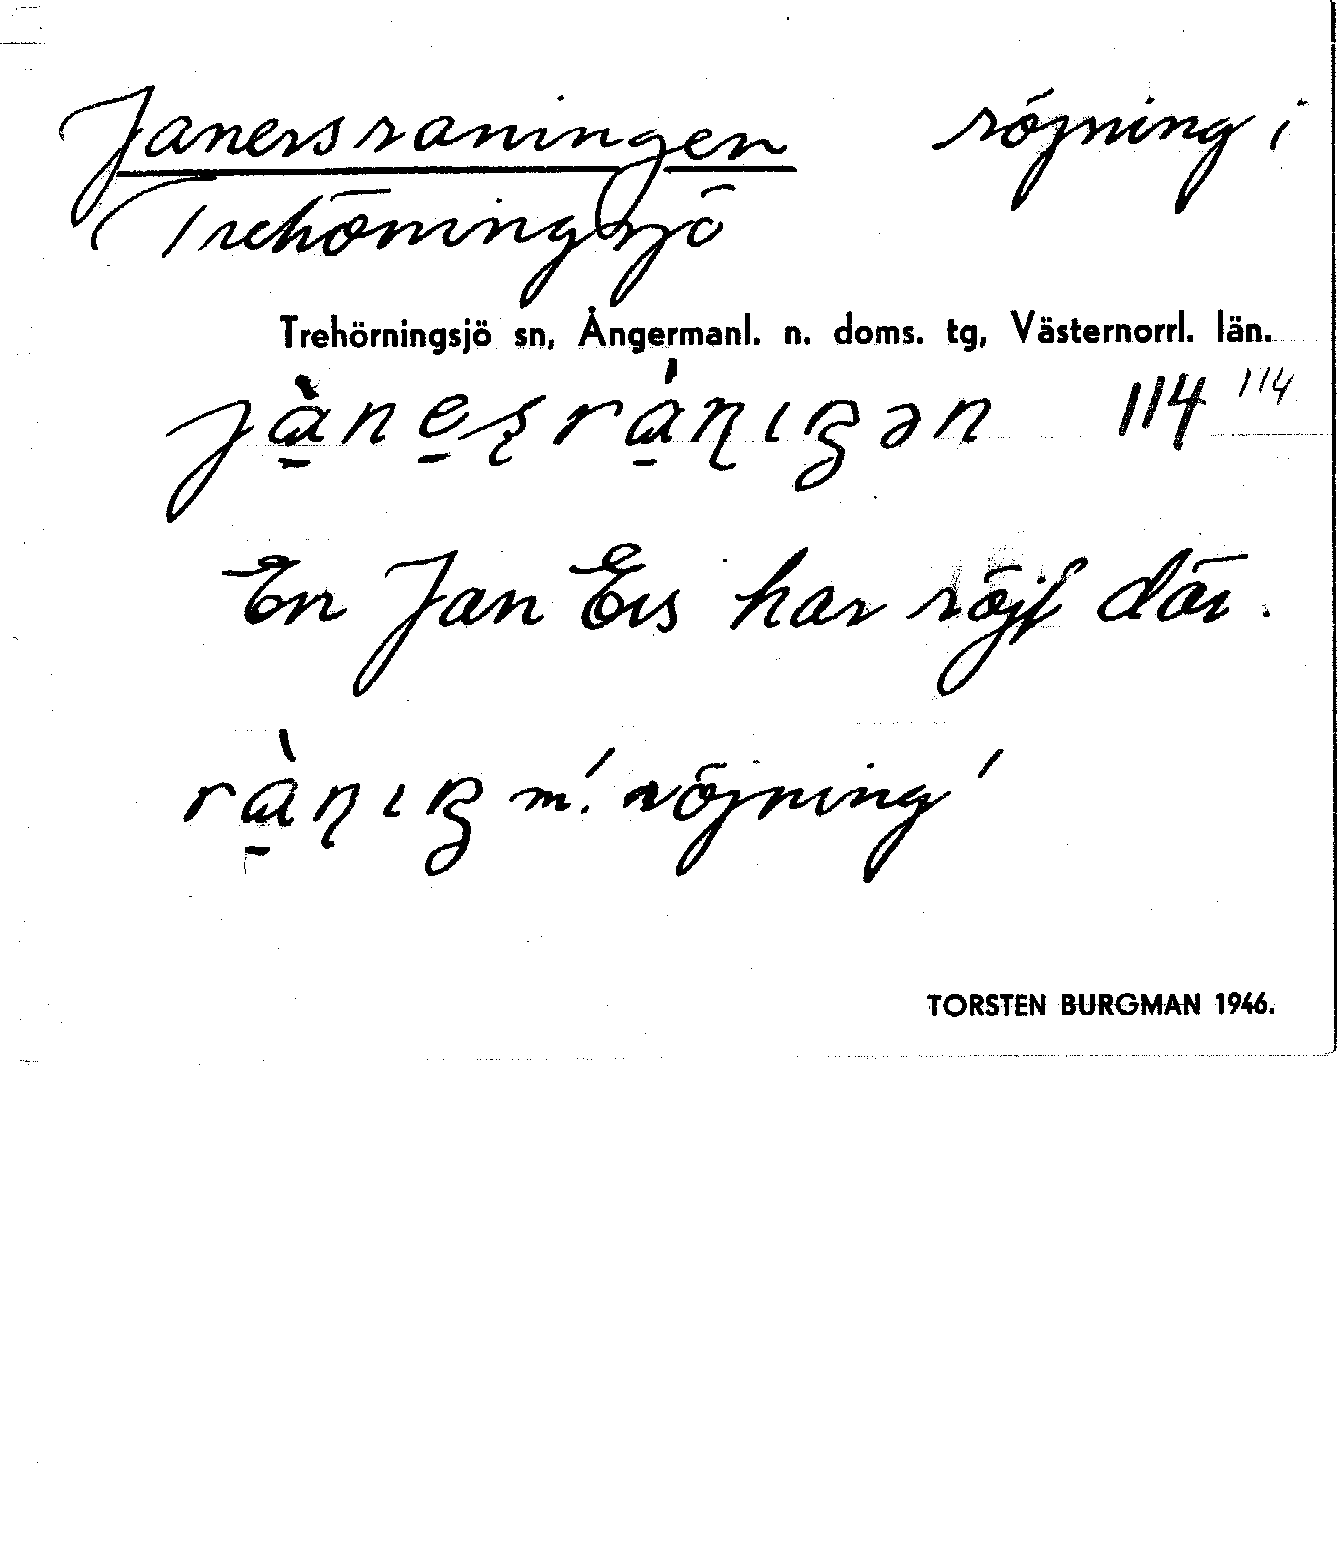 Janersraningen röjning i
Trehörningsjö
Trehörningsjö sn, Ångermanl. n. doms. tg, Västernorrl. län.
114 114
En Jan Ers har röjt där.
m. 'röjning'
TORSTEN BURGMAN 1946.